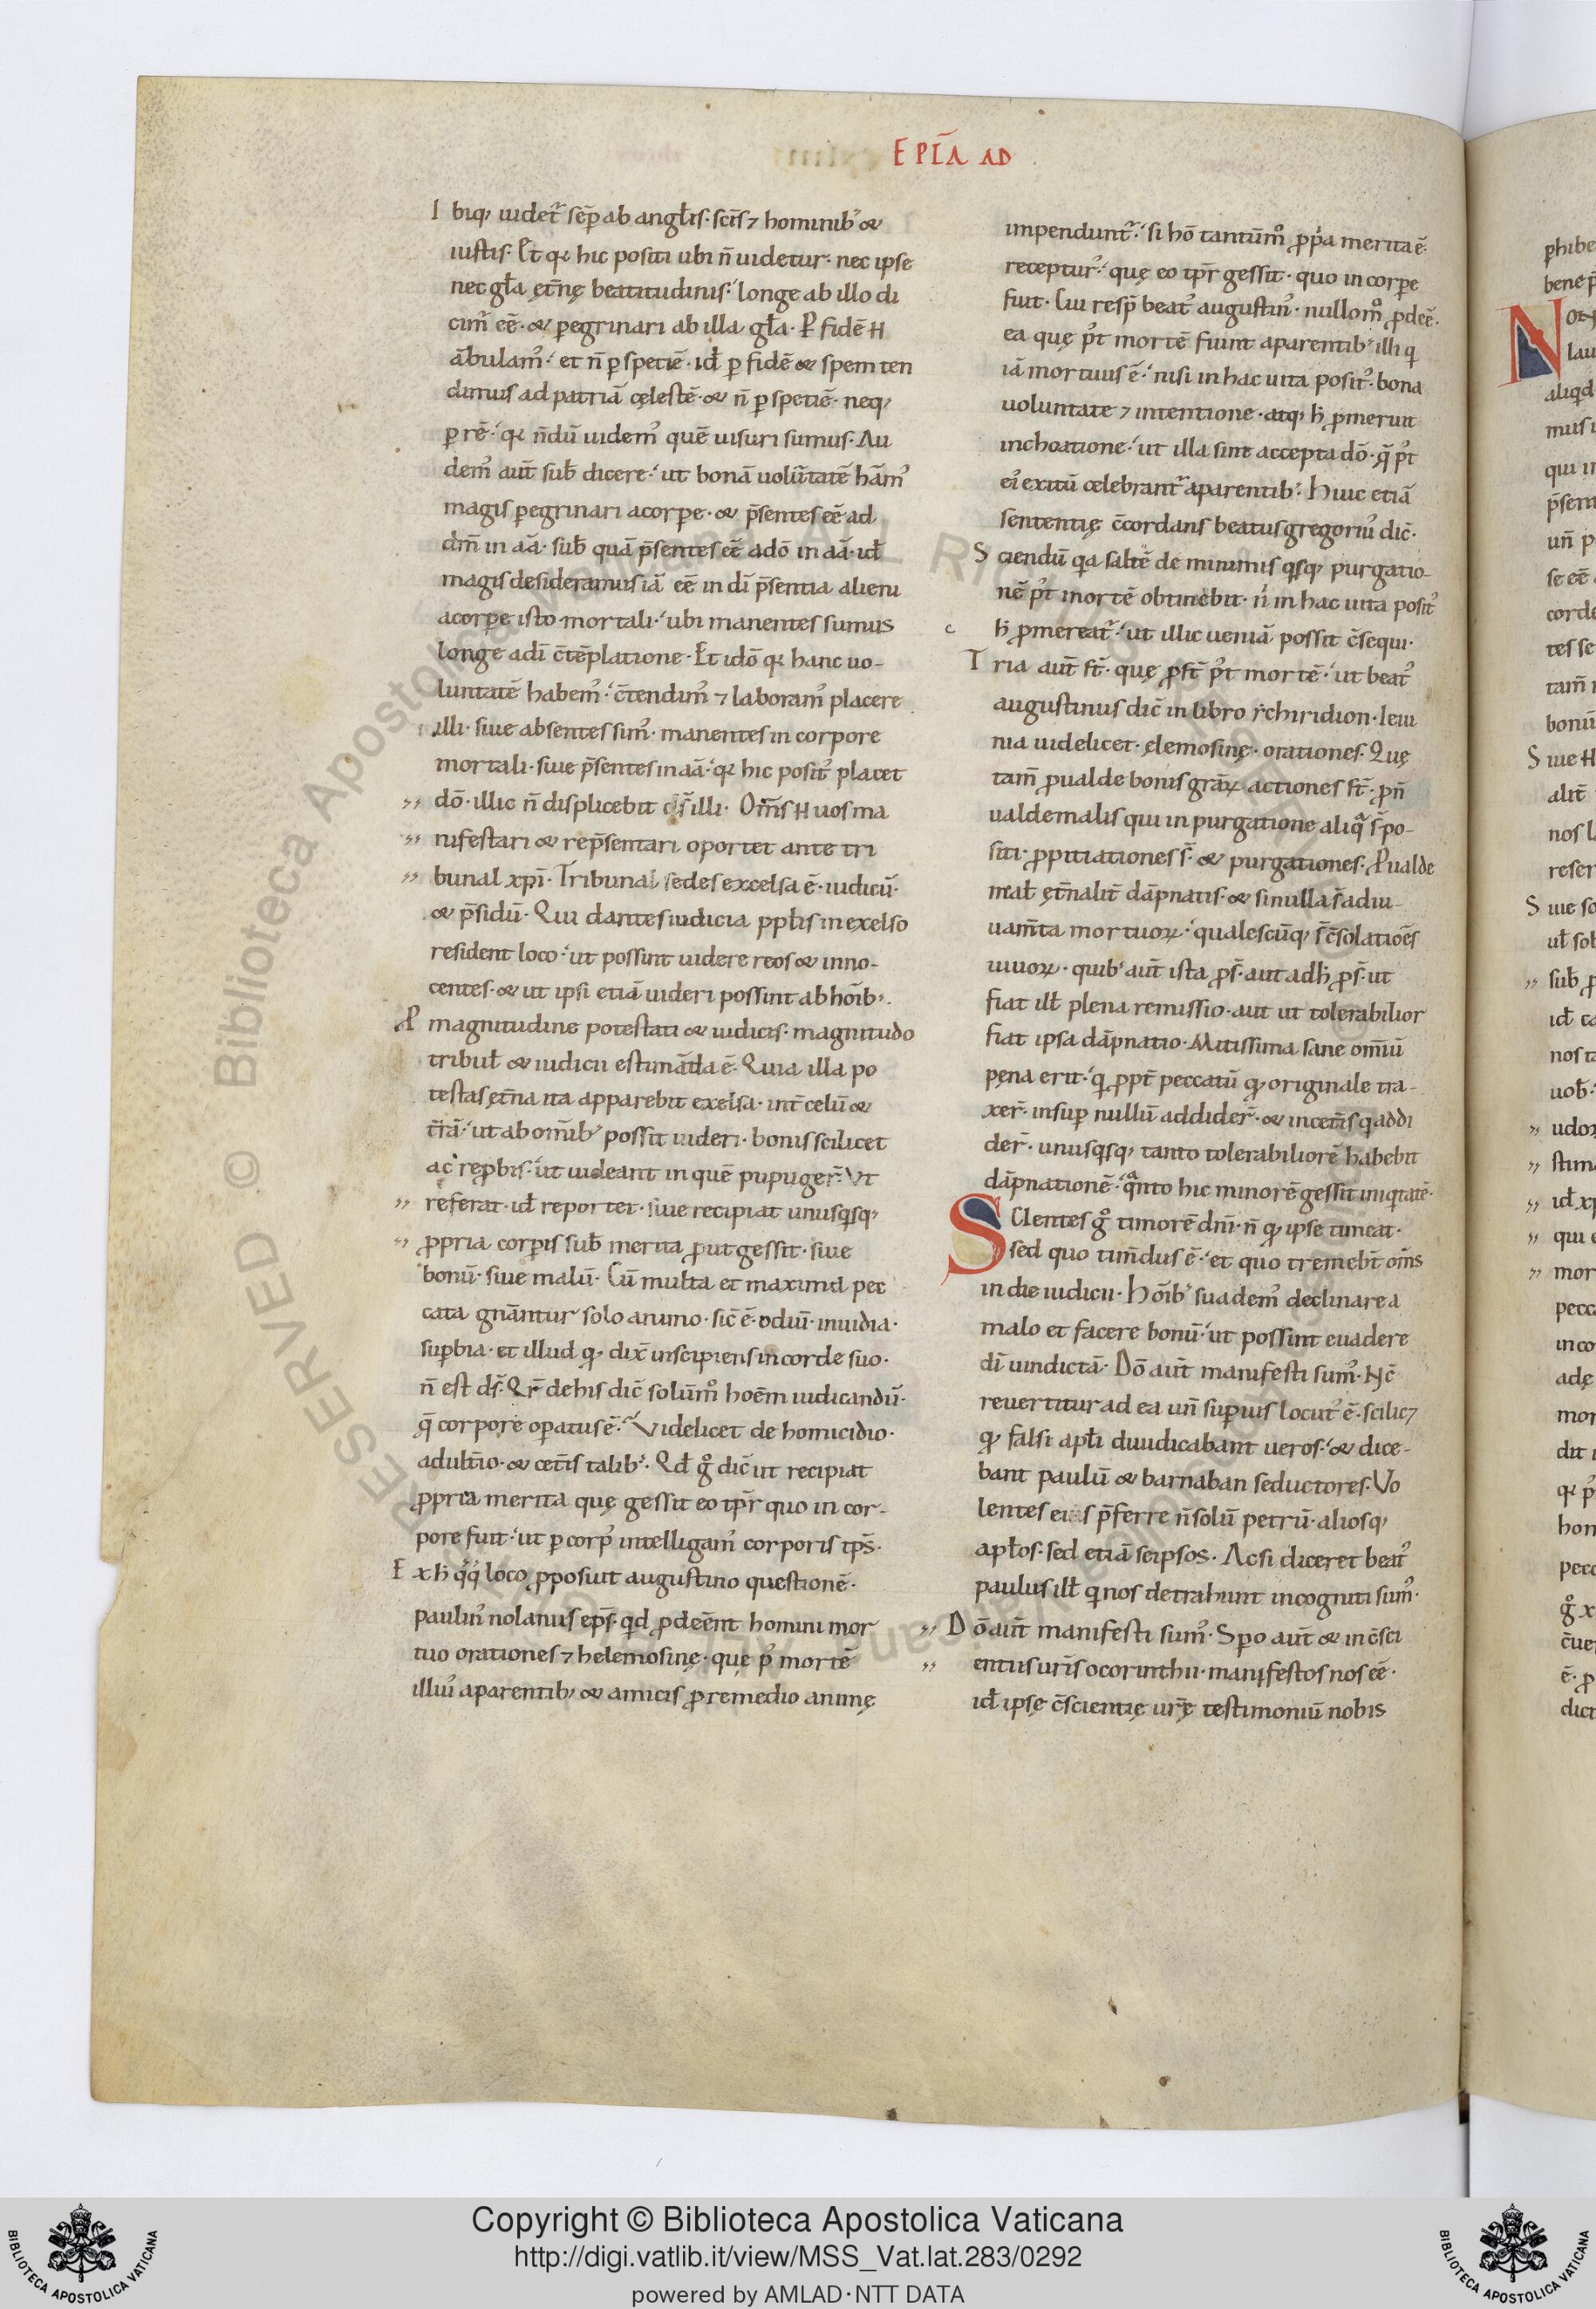 EPL̄A AD
Ibiq; uidet᷑ sēp ab angl̄is· sc̄is ⁊ hominib; &
iustis· Et q̄ hic positi ubi n̄ uidetur· nec ipse
nec gl̄a ęt̄nę beatitudinis· longe ab illo di
cim᷒ eē· & ꝑegrinari ab illa gl̄a· P fidē H
ābulam᷒· et n̄ ꝑ spetiē· id̄ ꝑ fidē & spem ten
dimus ad patriā cęlestē· & n̄ ꝑ spetiē· neq;
ꝑ rē· q̄ n̄dū uidem᷒ quē uisuri sumus· Au
dem᷒ aut̄ sub̄ dicere· ut bonā uolūtatē hām᷒
magis ꝑegrinari a corꝑe· & p̄sentes eē ad
dm̄ in aā· sub̄ quā p̄sentes eē a dō in aā· id̄
magis desideramus iā eē in dī p̄sentia alieni
a corꝑe isto mortali· ubi manentes sumus
longe a dī c̄tēplatione· Et idō q̄ hanc uo-
luntatē habem᷒· c̄tendim᷒ ⁊ laboram᷒ placere
illi· siue absentes sim᷒· manentes in corpore
mortali· siue p̄sentes in aā· q̄ hic posit᷒ placet
dō· illic n̄ displicebit illi· Om̄s H uos ma
nifestari & rep̄sentari oportet ante tri
bunal xp̄i· Tribunal sedes excelsa ē· iudicū·
& p̄sidū· Qui dantes iudicia ppl̄is in excelso
resident loco· ut possint uidere reos & inno-
centes· & ut ipsi etiā uideri possint ab hōib;·
P magnitudine potestati & iudicis· magnitudo
tribul̄ & iudicii estimāda ē· Quia illa po
testas ęt̄na ita apparebit exelsa· int̄ celū &
t̄rā· ut ab om̄ib; possit uideri· bonis scilicet
ac reꝓbis· ut uideant in quē pupuger̄· Vt
referat· id̄ reportet· siue recipiat unusq̇sq;
ꝓpria corꝑis sub̄ merita ꝓut gessit· siue
bonū· siue malū· Cū multa et maxima pec
cata gn̄antur solo animo· sic̄ ē· odiū· inuidia·
suꝑbia· et illud q; dix̄ insipiens in corde suo·
n̄ est ds̄· Qr̄ de his dic̄ solūm̊ hoēm iudicandū·
q̄ corpore oꝑatus ē· Videlicet de homicidio·
adult̄io· & cet̄is talib;· Qd̄ g̊ dic̄ ut recipiat
ꝓpria merita quę gessit eo tp̄r quo in cor-
pore fuit· ut ꝑ corp᷒ intelligam᷒ corporis tp̄s·
Ex h̄ q̊q; loco ꝓposuit augustino questionē·
paulin᷒ nolanus ep̄s· qd ꝓdeēnt homini mor
tuo orationes ⁊ helemosinę· que p᷒ mortē
illiu᷒ a parentib; & amicis ꝓ remedio animę
impendunt᷑· si hō tantūm̊ ꝓp̄a merita ē·
receptur᷒· quę eo tp̄r gessit· quo in corꝑe
fuit· Cui resp̄ beat᷒ augustin᷒· nullom̊ ꝓdeē·
ea quę p᷒t mortē fiunt a parentib; illi q̇
iā mortuus ē· nisi in hac uita posit᷒· bona
uoluntate ⁊ intentione· atq; h̄ ꝓmeruit
inchoatione· ut illa sint accepta dō· q̄ p᷒t
ei᷒ exitū celebrant᷑ a parentib;· Huic etiā
sententię c̄cordans beatus gregoriu᷒ dic̄·
Sciendū qa saltē de minimis q̇sq; purgatio-
nē p᷒t mortē obtinebit· n̄ in hac uita posit᷒
h̄ ꝓmereat᷑· ut illic ueniā possit c̄sequi·
Tria aut̄ st̄· quę ꝓst̄ p᷒t mortē· ut beat᷒
augustinus dic̄ in libro ēchiridion· leiu
nia uidelicet· ęlemosinę· orationes· Quę
tam̄ ꝓ ualde bonis grāꝝ actiones st̄· ꝓ n̄
ualde malis qui in purgatione aliq̄ s̄ po-
siti· ꝓpitiationes s̄· & purgationes· P ualde
mal̄ ęt̄nalit̄ dāpnatis· & si nulla s̄ adiu-
uam̄ta mortuoꝝ· qualescūq; s̄ c̄solatiōes
uiuoꝝ· quib; aut̄ ista ꝓs̄· aut ad h̄ ꝓs̄· ut
fiat ill̄ plena remissio· aut ut tolerabilior
fiat ipsa dāpnatio· Mitissima sane om̄iū
pęna erit· q̇ ꝓpt̄ peccatū q; originale tra-
xer̄· insuꝑ nullū addider̄· & in cet̄is q̇ addi
der̄· unusq̇sq; tanto tolerabiliorē habebit
dāpnationē· q̄nto hic minorē gessit iniq̇tatē·
SClentes g̊ timorē dn̄i· n̄ q; ipse timeat·
sed quo tim̄dus ē· et quo tremebt̄ om̄s
in die iudicii· Hōib; suadem᷒ declinare a
malo et facere bonū· ut possint euadere
dī uindictā· Dō aut̄ manifesti sum᷒· Hc̄
reuertitur ad ea un̄ suꝑius locut᷒ ē· scilic⁊
q; falsi apl̄i diiudicabant ueros· & dice-
bant paulū & barnaban seductores· Vo
lentes eis p̄ferre n̄ solū petrū· aliosq;
apl̄os· sed etiā seipsos· Ac si diceret beat᷒
paulus ill̄ q̇ nos detrahunt incogniti sum᷒·
Dō aut̄ manifesti sum᷒· Spo aut̄ & in c̄sci
entiis ur̄is o corinthii· manifestos nos eē·
id̄ ipsę c̄scientię ur̄ę testimoniū nobis
Copyright © Biblioteca Apostolica Vaticana
http://digi.vatlib.it/view/MSS_Vat.lat.283/0292
powered by AMLAD·NTT DATA